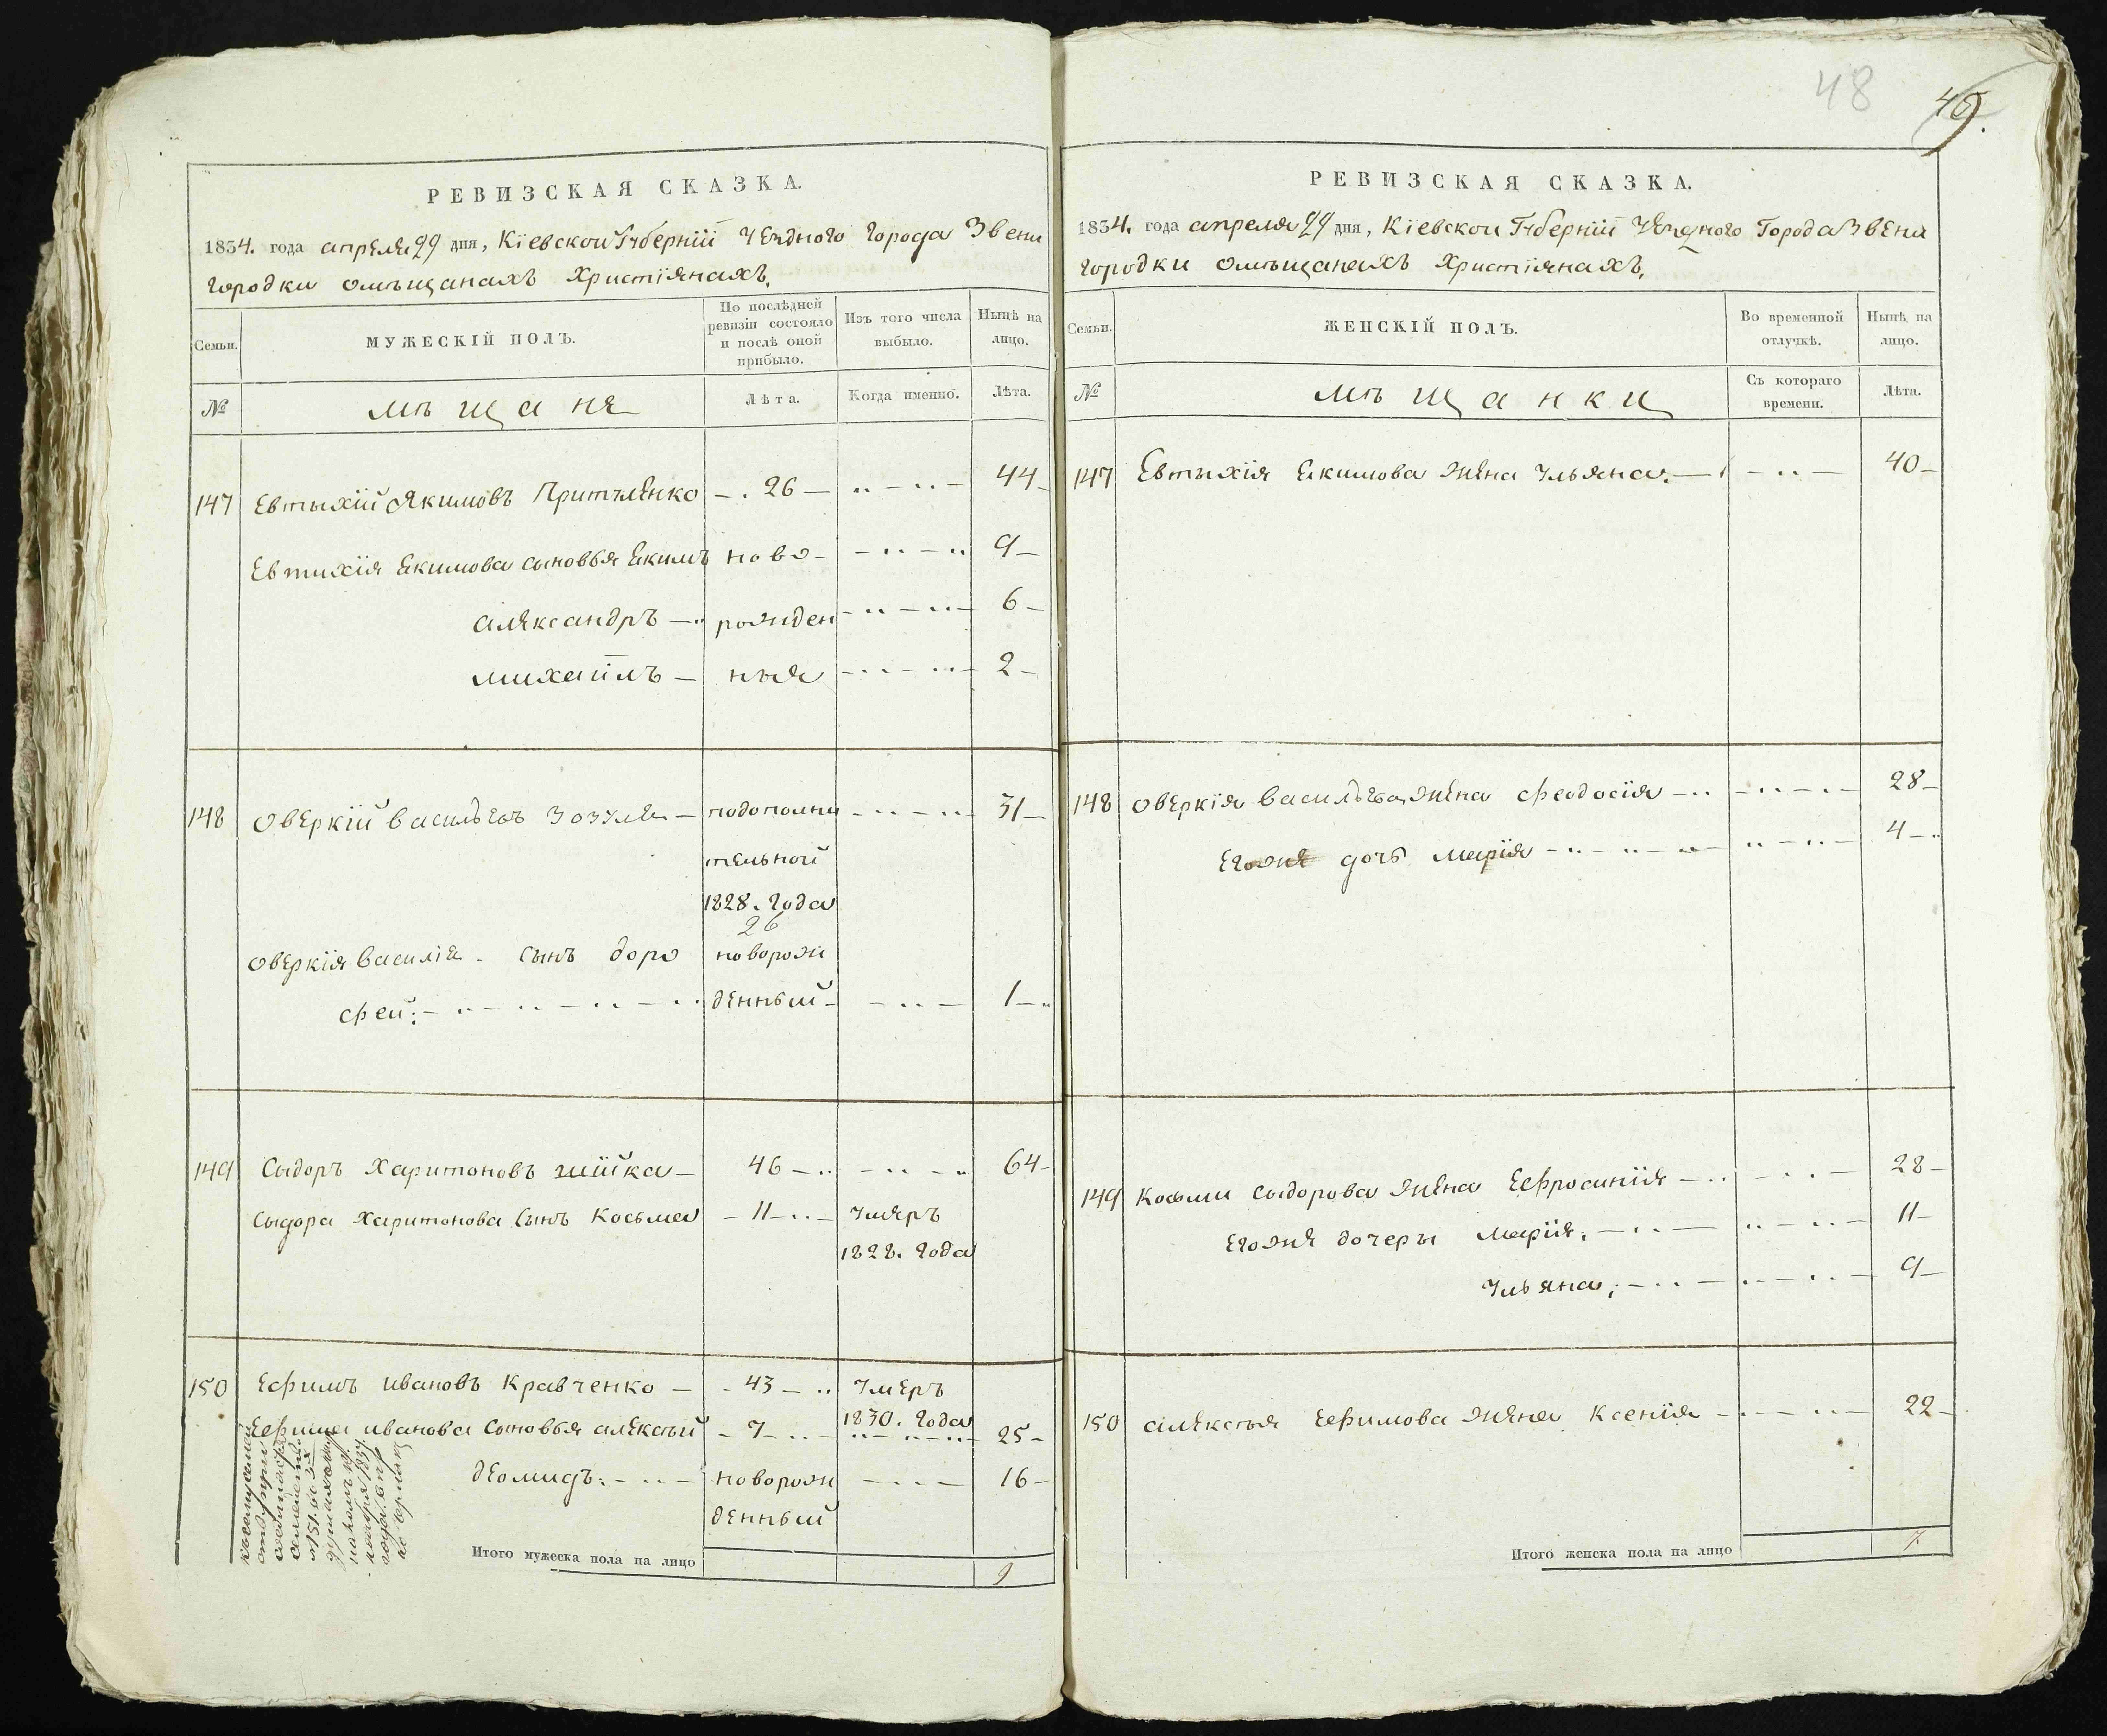 РЕВИЗСКАЯ СКАЗКА.
1834. года апреля 29 дня, Кіевской Губерніи Уезднаго Города Звени
городки омѣщанахъ Христіянахъ.
Семьи.
МУЖЕСКІЙ ПОЛЪ.
По послѣдней ревизіи состояло и послѣ оной прибыло.
Изъ того числа выбыло.
Нынѣ на лицо.
№
мѣщане
Лѣта.
Когда именно.
Лѣта.
147 Евтыхій Якимовъ Притуленко 26 44
Евтихія Екимова сыновья Екимъ ново- 9
Александръ рожден 6
михаилъ ныя 2
148 Оверкій васильевъ Зозуля подополни 31
тельной
1828. года
26
Оверкія василіе. сынъ доро новорож
фей: денный 1
149 Сыдоръ Харитоновъ шійка 46 64
Сыдора Харитонова сынъ Косьма 11 умеръ
1828. года
150 Ефимъ ивановъ Кравченко 43 умеръ
1830. года
Ефима иванова сыновья алексѣй 7 25
деомидъ: новорож 16
денный
Итого мужеска пола на лицо 9
48
РЕВИЗСКАЯ СКАЗКА.
1834. года апреля 29 дня, Кіевской Губерніи Уезднаго Города Звена
городки омѣщанахъ Христіянахъ.
Семьи.
ЖЕНСКІЙ ПОЛЪ.
Во временной отлучкѣ.
Нынѣ на лицо.
№
мѣщанки
Съ котораго времени.
Лѣта.
147 Евтыхія Екимова жена Ульяна. 40
148 Оверкія васильева жена феодосія 28
Егоже дочь марія 4
149 Козми сыдорова жена Ефросинія 28
Егоже дочеры марія. 11
Ульяна; 9
150 алексѣя Ефимова жена Ксенія 22
Итого женска пола на лицо 7.